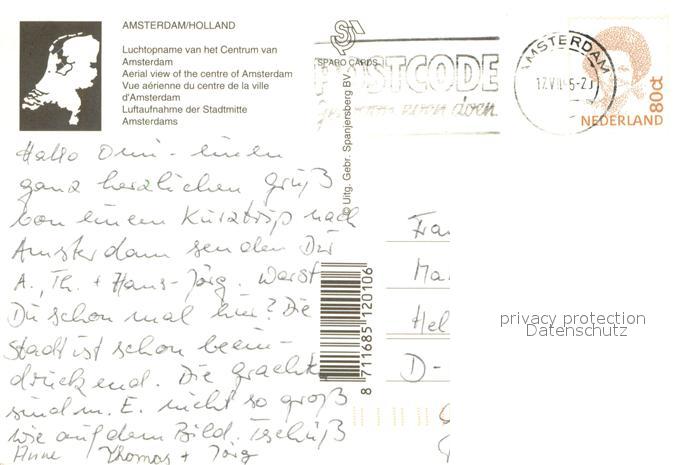 AMSTERDAM/HOLLAND
Luchtopname van het Centrum van
Amsterdam
Aerial view of the centre of Amsterdam
Vue aérienne du centre de la ville
d'Amsterdam
Luftaufnahme der Stadtmitte
Amsterdams
SPARO CARDS
© Uitg. Gebr. Spanjersberg BV.
POSTCODE
even doen
AMSTERDAM
NEDERLAND
80ct
Hallo Omi - einen
ganz herzlichen Gruß
von einem Kurztrip nach
Amsterdam senden Dir
A., Th. + Hans-Jörg. Warst
Du schon mal hier? Die
Stadt ist schon beein-
druckend. Die Grachten
sind m. E. nicht so groß
wie auf dem Bild. Tschüß
Anne Thomas + Jörg
8 711685 120106
Fra
Ma
Hel
D-
privacy protection
Datenschutz